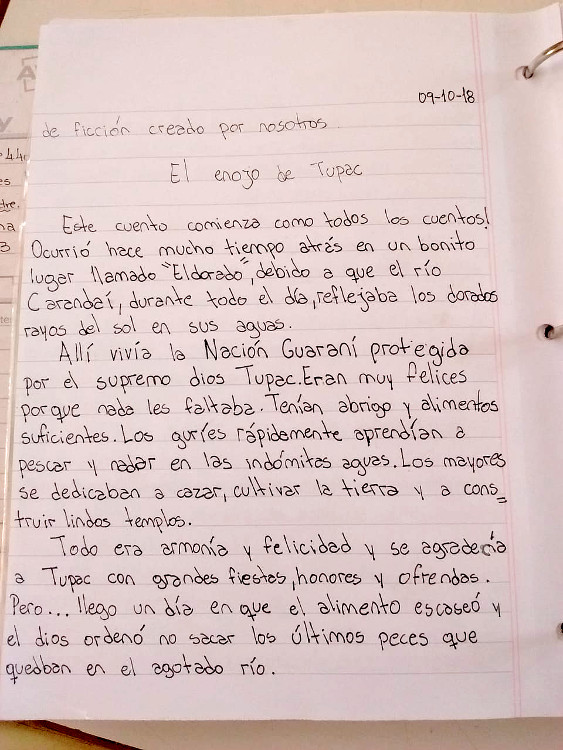 09-10-18
de ficción creado por nosotros.
El enojo de Tupac
Este cuento comienza como todos los cuentos!
Ocurrió hace mucho tiempo atrás en un bonito
lugar llamado "Eldorado", debido a que el río
Carandaí, durante todo el día, reflejaba los dorados
rayos del sol en sus aguas.
Allí vivía la Nación Guaraní protegida
por el supremo dios Tupac. Eran muy felices
porque nada les faltaba. Tenían abrigo y alimentos
suficientes. Los guríes rápidamente aprendían a
pescar y nadar en las indómitas aguas. Los mayores
se dedicaban a cazar, cultivar la tierra y a cons_
truir lindos templos.
Todo era armonía y felicidad y se agradecía
a Tupac con grandes fiestas, honores y ofrendas.
Pero... llego un día en que el alimento escaseó y
el dios ordenó no sacar los últimos peces que
quedban en el agotado río.